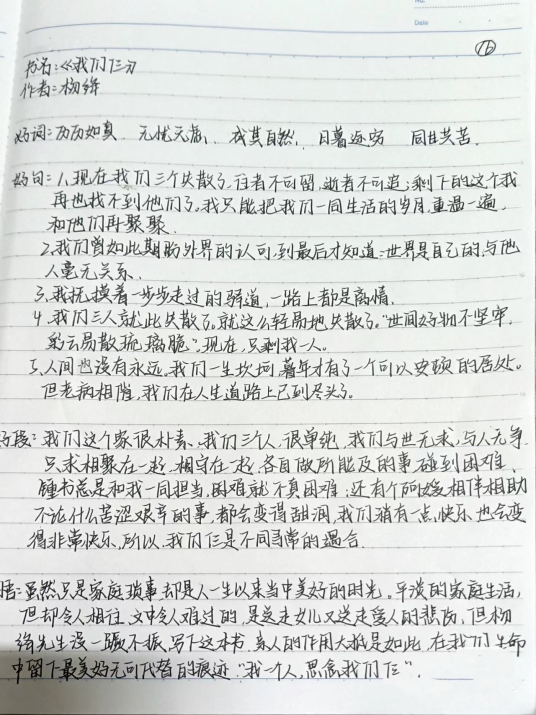 No.
Date
16
书名:《我们仨》
作者:杨绛
好词:历历如真 无忧无虑、 我其自然、 日暮途穷 同甘共苦.
好句:1.现在我们三个失散了.往者不可留,逝者不可追;剩下的这个我
再也找不到他们了.我只能把我们一同生活的岁月,重温一遍,
和他们再聚聚.
2.我们曾如此期盼外界的认可,到最后才知道:世界是自己的,与他
人毫无关系.
3.我抚摸着一步步走过的驿道,一路上都是离情.
4.我们三人就此失散了,就这么轻易地失散了."世间好物不坚牢,
彩云易散琉璃脆".现在,只剩我一人。
5.人间也没有永远.我们一生坎坷,暮年才有了一个可以安顿的居处。
但老病相催,我们在人生道路上已到尽头了。
好段:我们这个家很朴素、我们三个人,很单纯,我们与世无求,与人无争
只求相聚在一起,相守在一起,各自做所能及的事.碰到困难,
锺书总是和我一同担当,困难就不复困难;还有个阿媛相伴相助
不论什么苦涩艰辛的事,都会变得甜润,我们稍有一点快乐,也会变
得非常快乐.所以,我们仨是不同寻常的遇合.
悟:虽然只是家庭琐事,却是人一生以来当中美好的时光。平淡的家庭生活,
但却令人相往.文中令人难过的,是送走女儿又送走爱人的悲伤,但杨
绛先生没一蹶不振,写下这本书.亲人的作用大抵是如此,在我们生命
中留下最美好无可代替的痕迹."我一个人,思念我们仨".